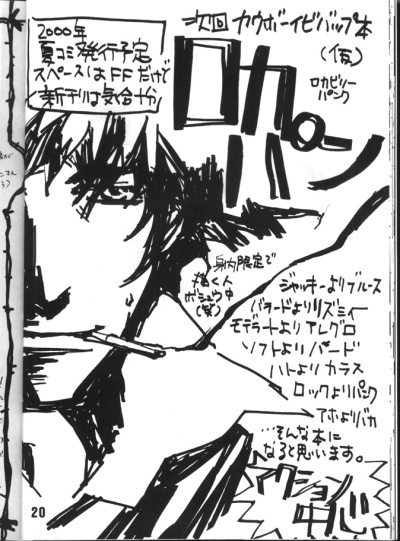 2000年
夏コミ発行予定
スペースはFFだけで
新刊は気合十分
次回 カウボーイビバップ本
(仮)
ロカパン
ロカビリー
パンク
身内限定で
描く人
ボシュウ中
(笑)
ジャッキーよりブルース
バラードよりリズミィ
モデラートよりアレグロ
ソフトよりハード
ハトよりカラス
ロックよりパンク
アホよりバカ
…そんな本に
なると思います。
アクション
中心
20